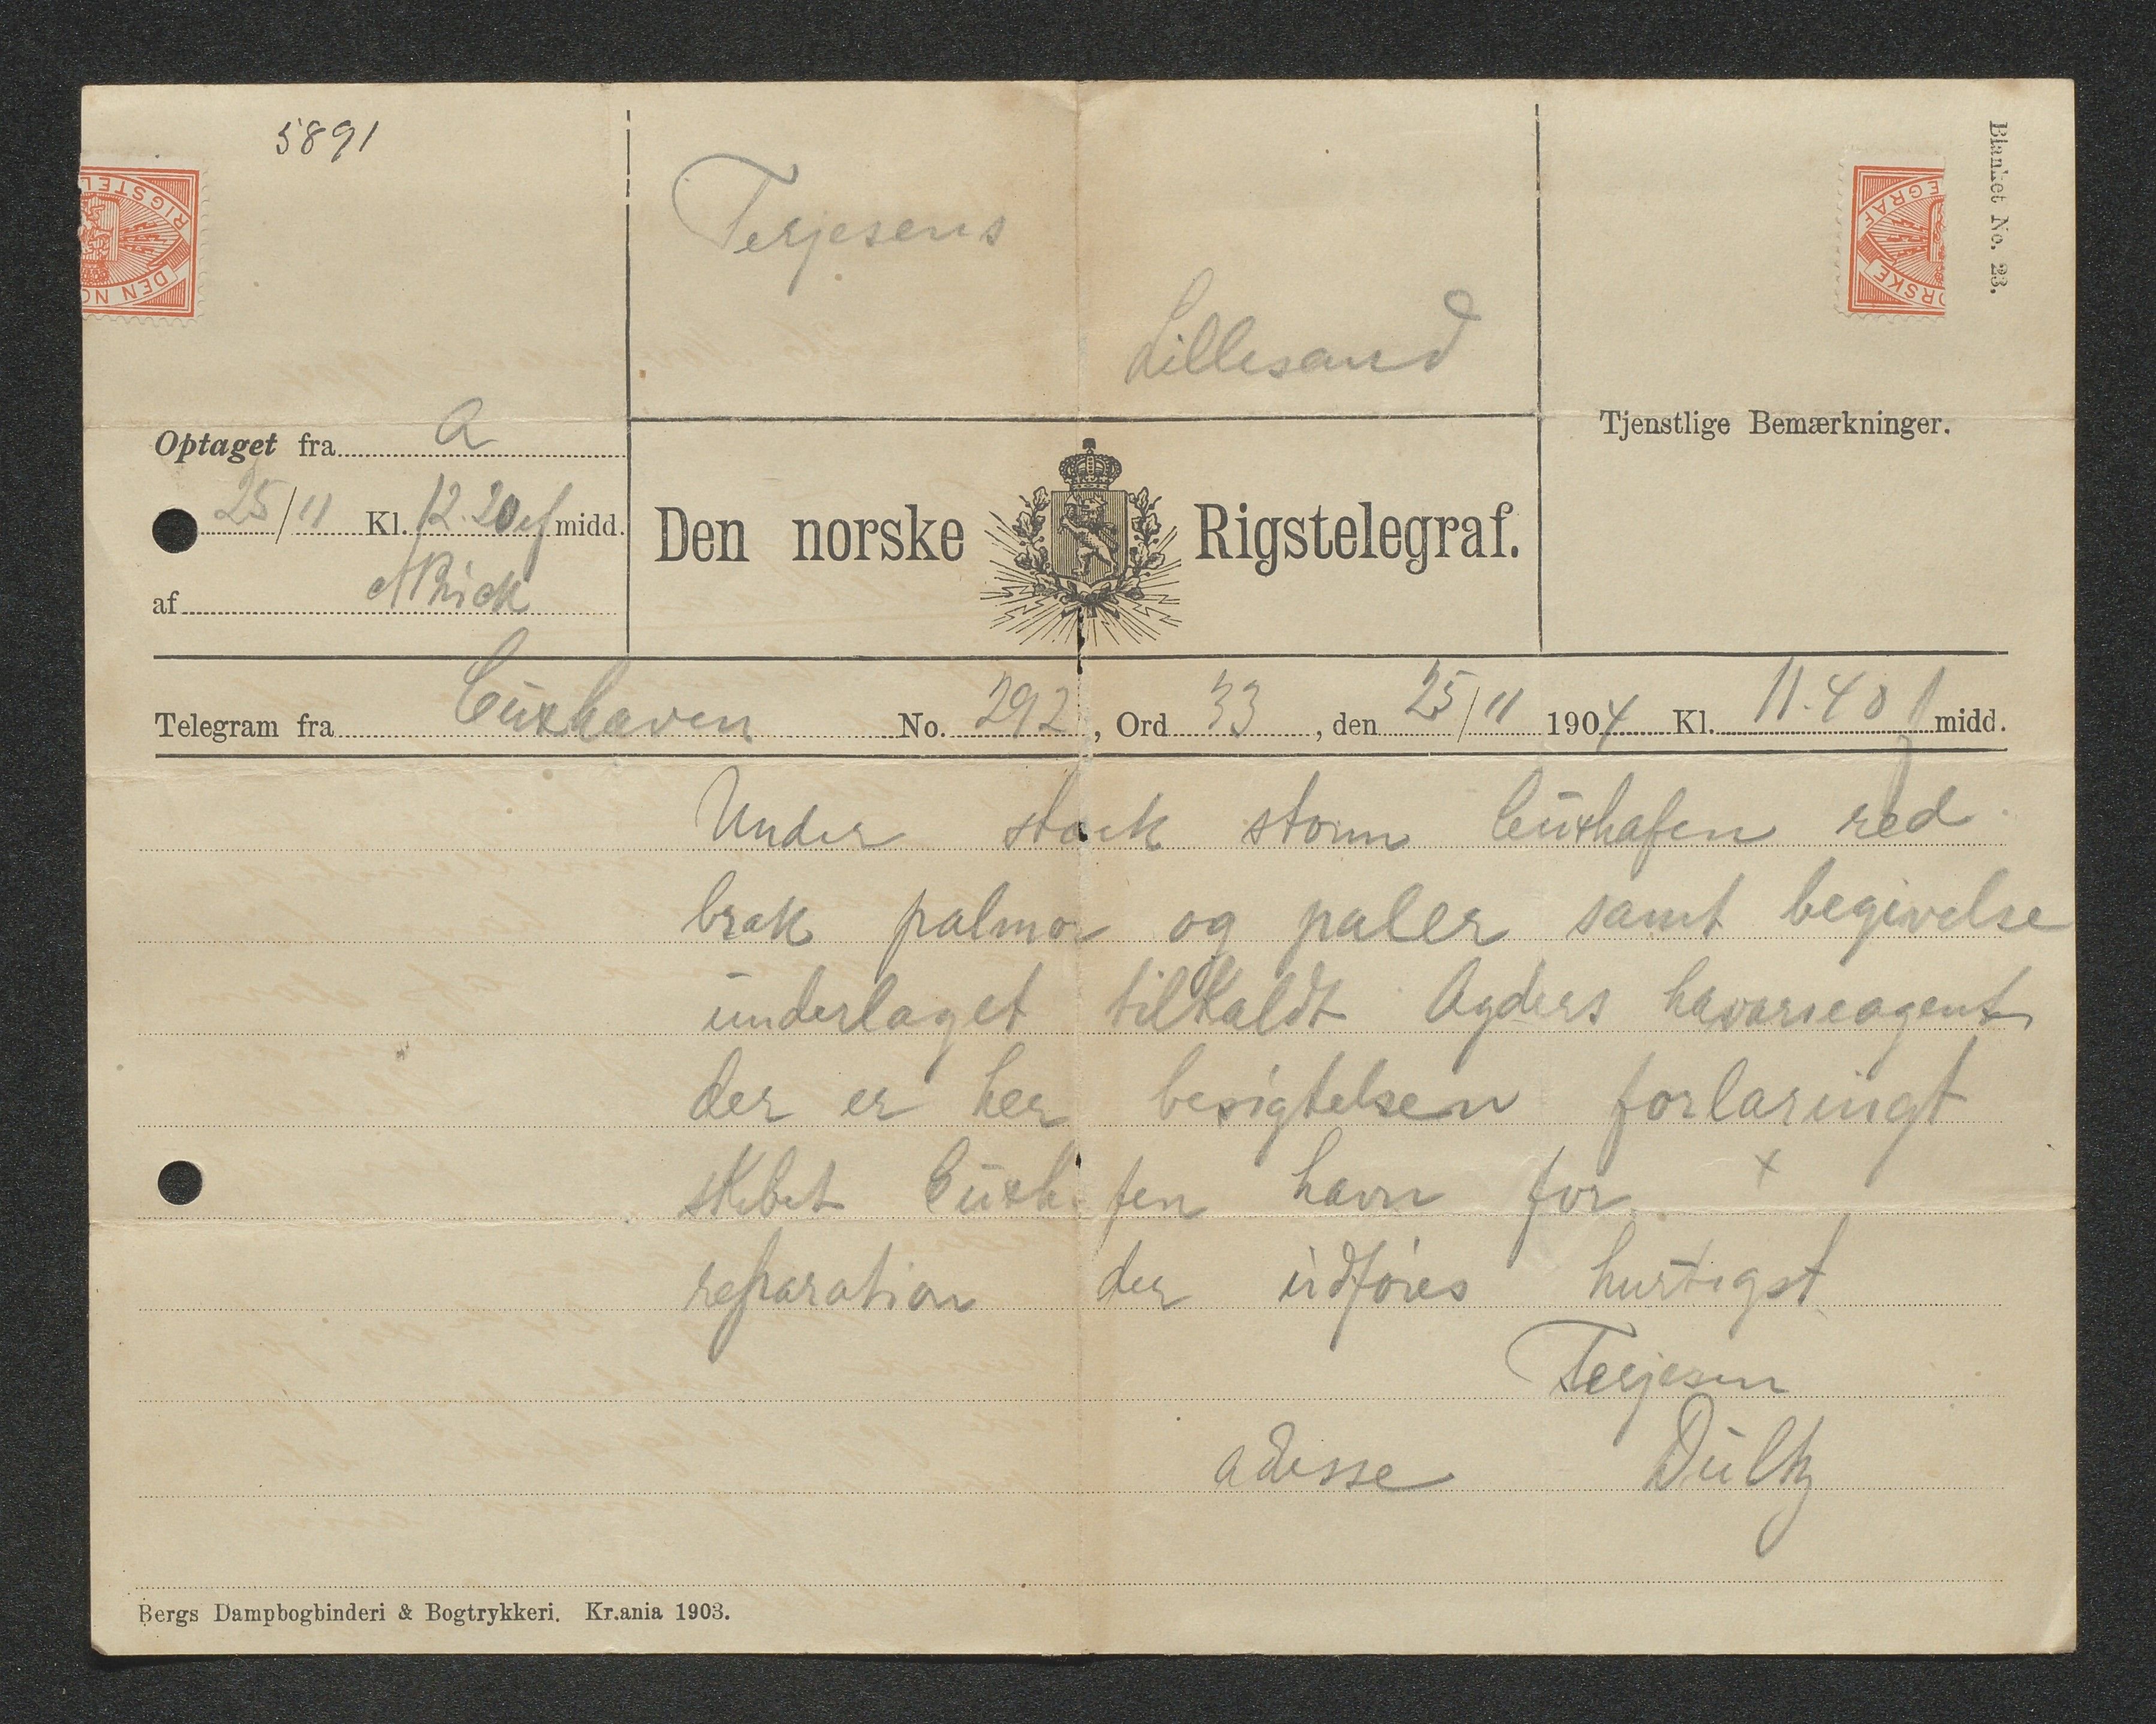 5891
Terjesens
Lillesand
Blanket No. 23.
RIGSTEL
DEN NO
EGRAF
ORSKE
Optaget fra a
25/11 Kl. 12.20 ef midd.
af
Den norske Rigstelegraf.
Tjenstlige Bemærkninger.
Telegram fra Cuxhaven No. 292, Ord 33, den 25/11 1904 Kl. 11.40 f midd.
Under stærk storm Cuxhafen red
brak palmor og paler samt begivelse
underlaget tilkaldt Agders havarieagent
der er her besigtelsen forlaringt
skibet Cuxhafen havn for x
reparation der udføres hurtigst
Terjesen
adresse Dültz
Bergs Dampbogbinderi & Bogtrykkeri. Kr.ania 1903.